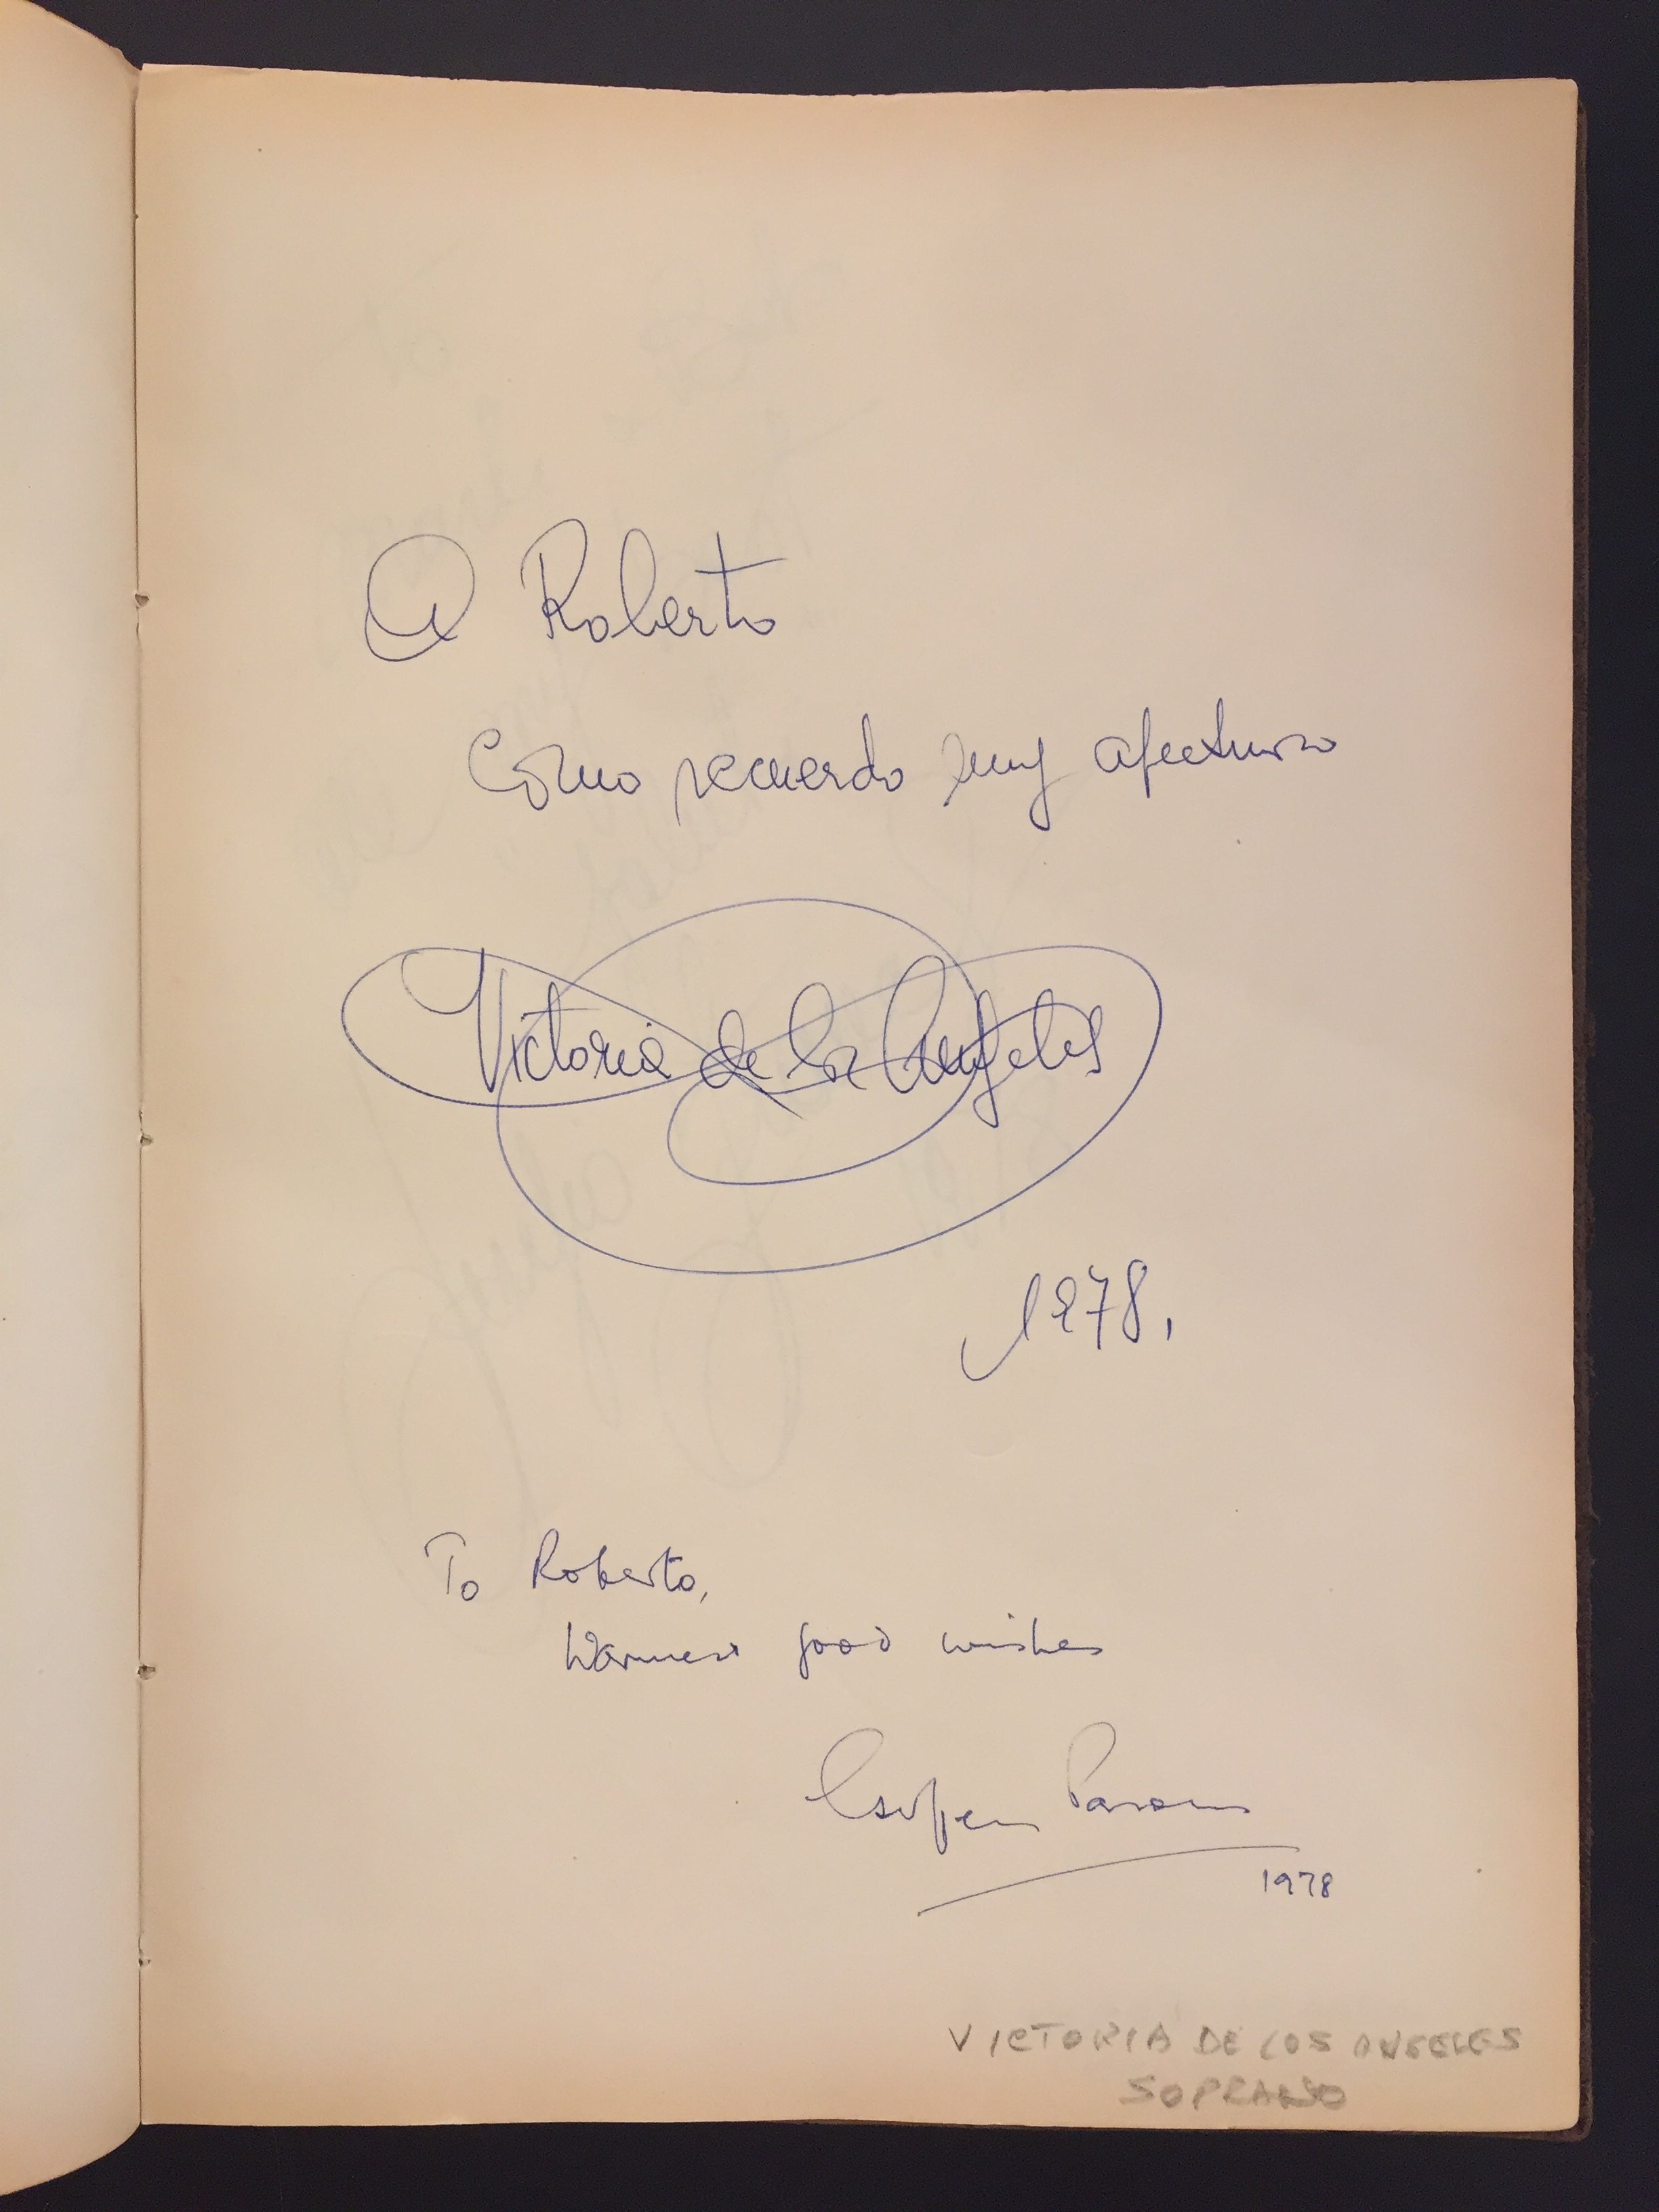 A Roberto
Como recuerdo muy afectuoso
Victoria de los Angeles
1978.
To Roberto,
Warmest good wishes
Geoffrey Parsons
1978
VICTORIA DE LOS ANGELES
SOPRANO